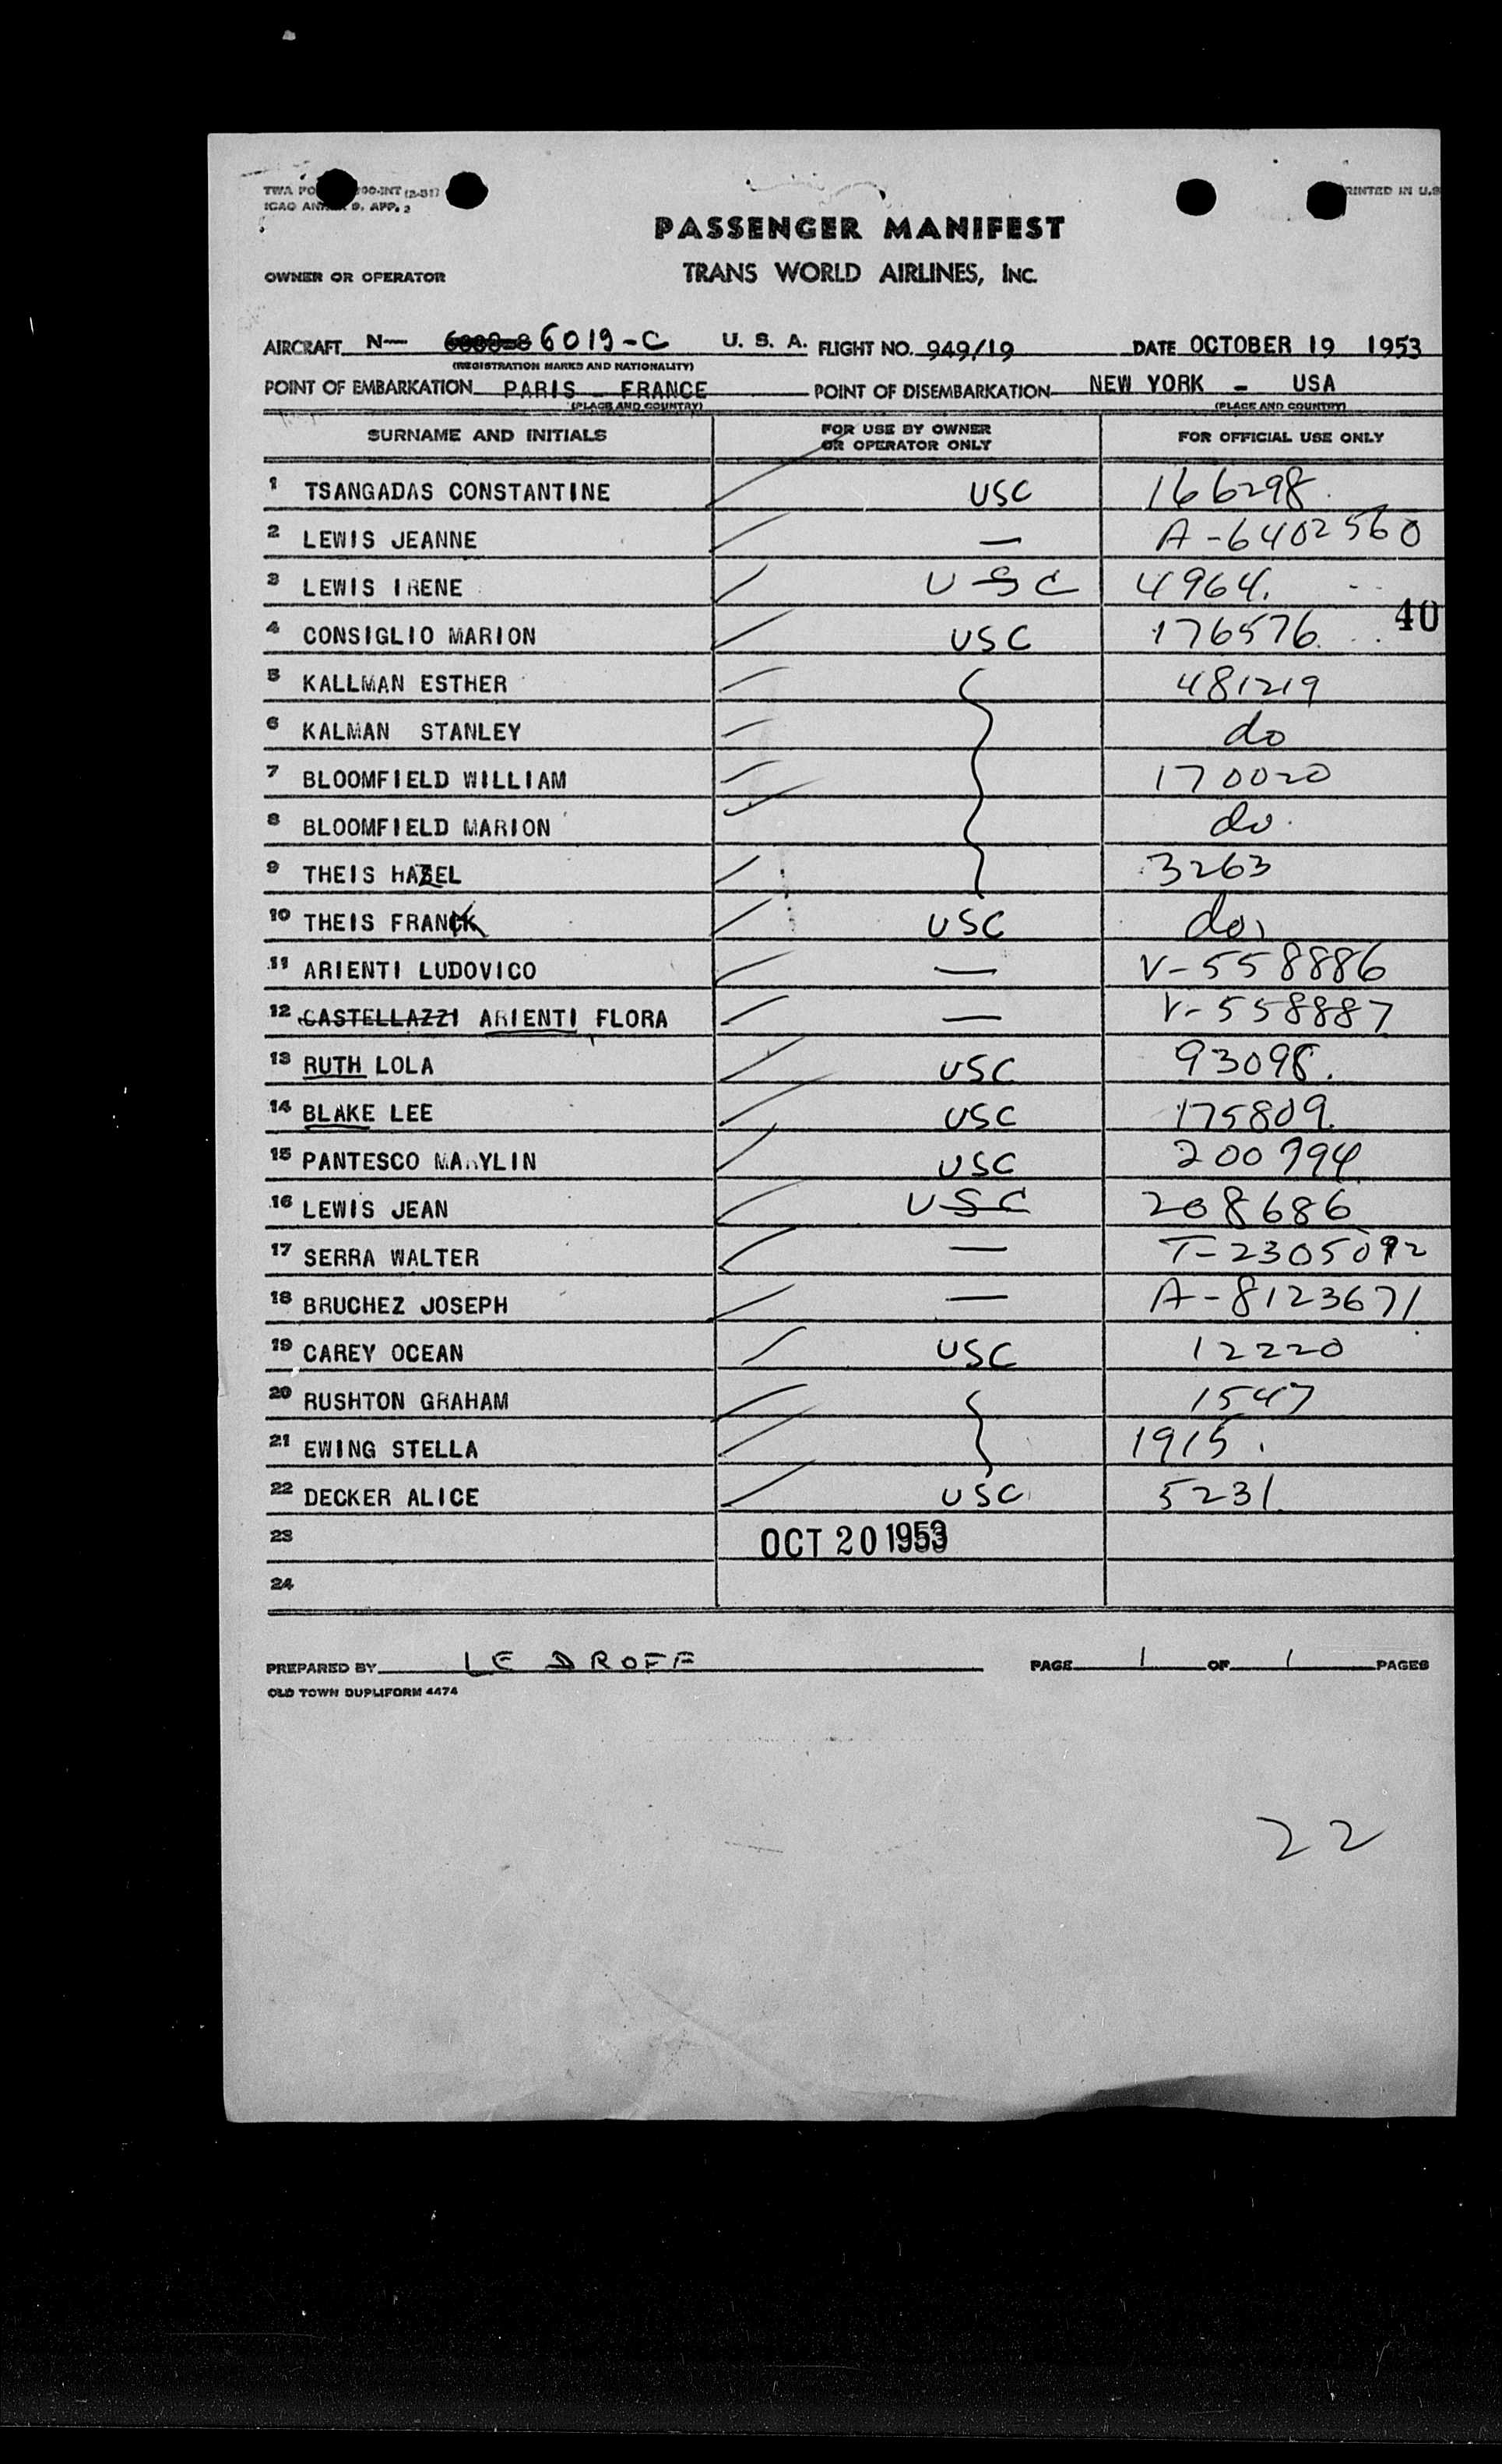 ICAO ANNEX 9. APP. 2
PRINTED IN U.S
PASSENGER MANIFEST
OWNER OR OPERATOR TRANS WORLD AIRLINES, INC.
AIRCRAFT N— 6019-C U. S. A. FLIGHT NO. 949/19 DATE OCTOBER 19 1953
(REGISTRATION MARKS AND NATIONALITY)
POINT OF EMBARKATION PARIS - FRANCE POINT OF DISEMBARKATION NEW YORK - USA
(PLACE AND COUNTRY) (PLACE AND COUNTRY)
SURNAME AND INITIALS FOR USE BY OWNER OR OPERATOR ONLY FOR OFFICIAL USE ONLY
1 TSANGADAS CONSTANTINE USC 166298.
2 LEWIS JEANNE — A-6402560
3 LEWIS IRENE USC 4964.
40
4 CONSIGLIO MARION USC 176576.
5 KALLMAN ESTHER 481219
6 KALMAN STANLEY do
7 BLOOMFIELD WILLIAM 170020
8 BLOOMFIELD MARION do.
9 THEIS HAZEL 3263
10 THEIS FRANK USC do
11 ARIENTI LUDOVICO — V-558886
12 CASTELLAZZI ARIENTI FLORA — V-558887
13 RUTH LOLA USC 93098.
14 BLAKE LEE USC 175809.
15 PANTESCO MARYLIN USC 200794
16 LEWIS JEAN USC 208686
17 SERRA WALTER — T-2305092
18 BRUCHEZ JOSEPH — A-8123671
19 CAREY OCEAN USC 12220
20 RUSHTON GRAHAM 1547
21 EWING STELLA 1915.
22 DECKER ALICE USC 5231
23 OCT 20 1953
24
PREPARED BY LE DROFF PAGE 1 OF 1 PAGES
OLD TOWN DUPLIFORM 4474
22